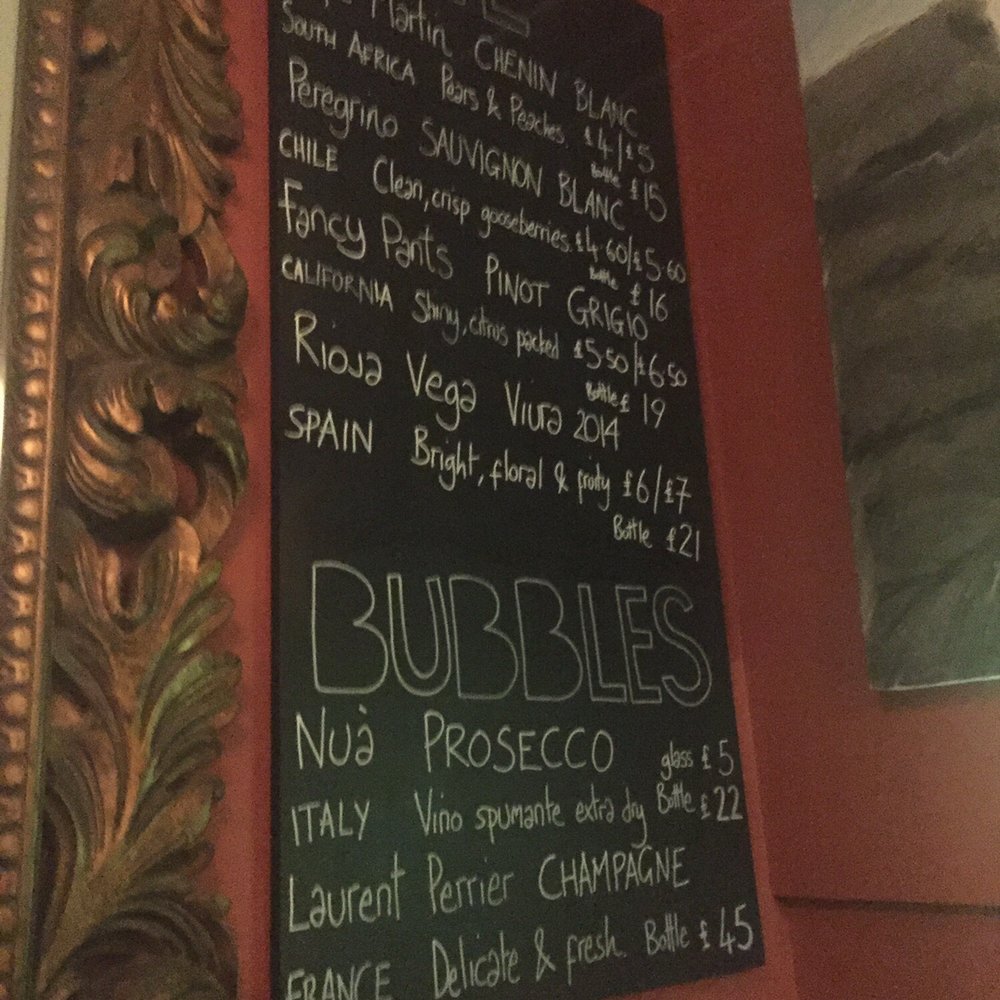 Martin CHENIN BLANC
SOUTH AFRICA Pears & Peaches. £4/£5
Bottle £15
Peregrino SAUVIGNON BLANC
CHILE Clean, crisp gooseberries. £4.60/£5.60
Bottle £16
Fancy Pants PINOT GRIGIO
CALIFORNIA Shiny, citrus packed £5.50/£6.50
Bottle £19
Rioja Vega Viura 2014
SPAIN Bright, floral & fruity £6/£7
Bottle £21
BUBBLES
Nuà PROSECCO glass £5
ITALY Vino spumante extra dry Bottle £22
Laurent Perrier CHAMPAGNE
FRANCE Delicate & fresh. Bottle £45